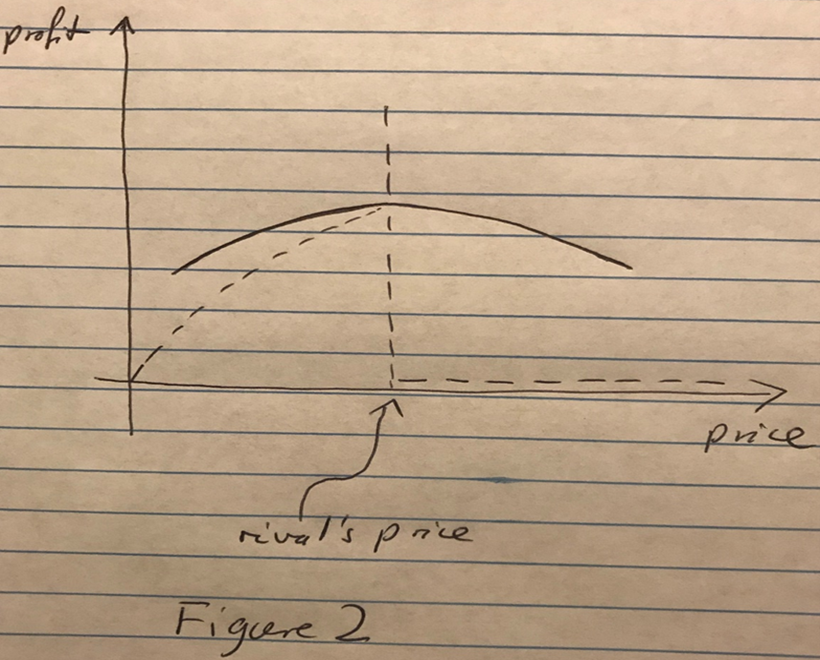 profit
price
rival's price
Figure 2